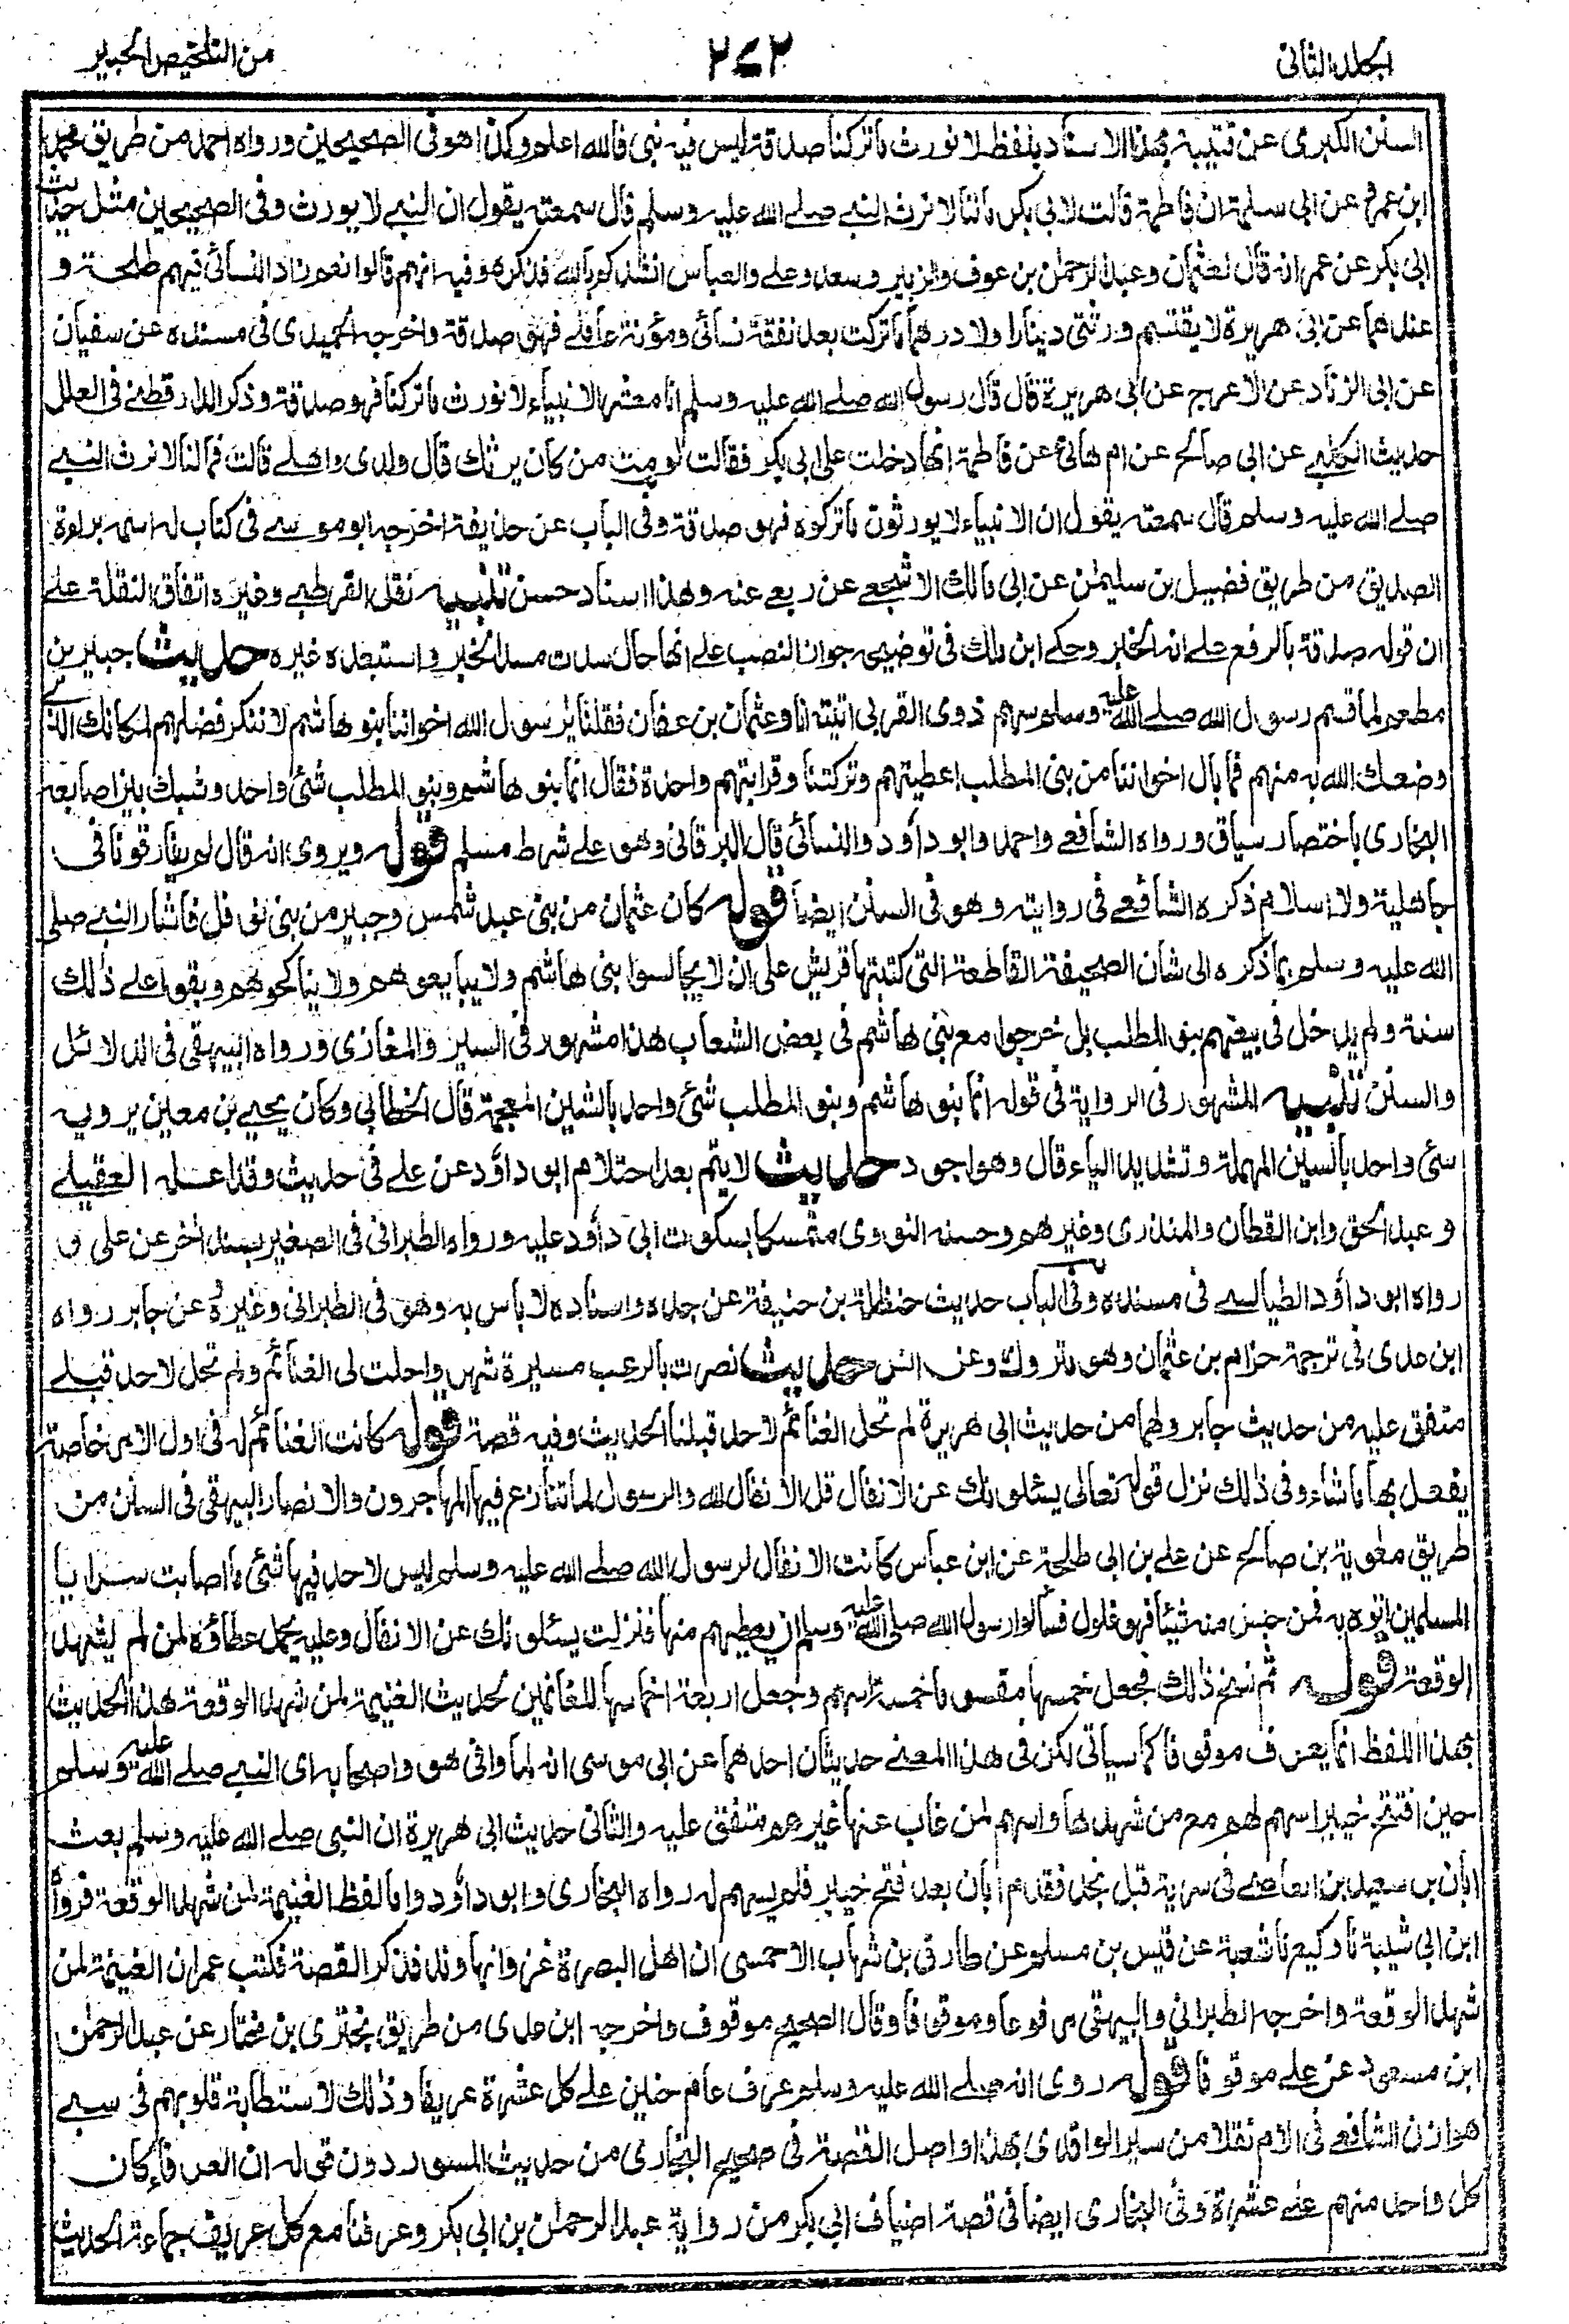 الجلد الثانى
٢٧٢
من التلخيص الحبير
السنن الكبرى عن قتيبة بهذا الاسناد بلفظ لا نورث ما تركنا صدقة ليس فيه نبى فالله اعلم وكذا هو فى الصحيحين ورواه احمد من طريق محمد
ابن عمرو عن ابى سلمة ان فاطمة قالت لابى بكر مالنا لا نرث النبى صلى الله عليه وسلم قال سمعته يقول ان النبى لا يورث وفى الصحيحين مثل حديث
ابى بكر عن عمر انه قال لعثمان وعبد الرحمن بن عوف والزبير وسعد وعلى والعباس انشدكم بالله فذكره وفيه انهم قالوا نعم زاد النسائى فيهم طلحة و
عندهما عن ابى هريرة لا يقتسم ورثتى دينارا ولا درهما ما تركت بعد نفقة نسائى ومؤنة عاملى فهو صدقة واخرجه الحميدى فى مسنده عن سفيان
عن ابى الزناد عن الاعرج عن ابى هريرة قال قال رسول الله صلى الله عليه وسلم انا معشر الانبياء لا نورث ما تركنا فهو صدقة وذكر الدارقطنى فى العلل
حديث الكلبى عن ابى صالح عن ام هانئ عن فاطمة انها دخلت على ابى بكر فقالت لو مت من كان يرثك قال ولدى واهلى قالت فمالنا لا نرث النبى
صلى الله عليه وسلم قال سمعته يقول ان الانبياء لا يورثون ما تركوه فهو صدقة وفى الباب عن حذيفة اخرجه ابو موسى فى كتاب له اسمه براءة
الصديق من طريق فضيل بن سليمن عن ابى مالك الاشجعى عن ربعى عنه وهذا اسناد حسن تنبيه نقل القرطبى وغيره اتفاق النقلة على
ان قوله صدقة بالرفع على انه الخبر وحكى ابن مالك فى توضيحه جواز النصب على انها حال سدت مسد الخبر واستبعده غيره حديث جبير بن
مطعم لما قسم رسول الله صلى الله عليه وسلم سهم ذوى القربى اتيته انا وعثمان بن عفان فقلنا يرسول الله اخواننا بنو هاشم لا ننكر فضلهم لمكانك الذى
وضعك الله به منهم فما بال اخواننا من بنى المطلب اعطيتهم وتركتنا وقرابتهم واحدة فقال انما بنو هاشم وبنو المطلب شئ واحد وشبك بين اصابعه
البخارى باختصار سياق ورواه الشافعى واحمد وابو داود والنسائى قال البرقانى وهو على شرط مسلم قوله ويروى انه قال لم يفارقونا فى
جاهلية ولا اسلام ذكره الشافعى فى روايته وهو فى السنن ايضا قوله كان عثمان من بنى عبد شمس وجبير من بنى نوفل فاشار النبى صلى
الله عليه وسلم بما ذكره الى شان الصحيفة القاطعة التى كتبتها قريش على ان لا يجالسوا بنى هاشم ولا يبايعوهم ولا يناكحوهم وبقوا على ذلك
سنة ولم يدخل فى بيعتهم بنو المطلب بل خرجوا مع بنى هاشم فى بعض الشعاب هذا مشهور فى السير والمغازى ورواه البيهقى فى الدلائل
والسنن تنبيه المشهور فى الرواية فى قوله انما بنو هاشم وبنو المطلب شئ واحد بالشين المعجمة قال الخطابى وكان يحيى بن معين يرويه
سئ واحد بالسين المهملة وتشديد الياء قال وهو اجود حديث لا يتم بعد احتلام ابو داؤد عن على فى حديث وقد اعله العقيلى
و عبد الحق وابن القطان والمنذرى وغيرهم وحسنه النووى متمسكا بسكوت ابى داؤد عليه ورواه الطبرانى فى الصغير بسند آخر عن على و
رواه ابو داؤد الطيالسى فى مسنده وفى الباب حديث حنظلة بن حنيفة عن جده واسناده لا باس به وهو فى الطبرانى وغيره عن جابر رواه
ابن عدى فى ترجمة حزام بن عثمان وهو متروك وعن انس حديث نصرت بالرعب مسيرة شهر واحلت لى الغنائم ولم تحل لاحد قبلى
متفق عليه من حديث جابر ولهما من حديث ابى هريرة لم تحل الغنائم لاحد قبلنا الحديث وفيه قصة قوله كانت الغنائم له فى اول الامر خاصة
يفعل بها ما شاء وفى ذلك نزل قوله تعالى يسئلونك عن الانفال قل الانفال لله والرسول لما تنازع فيها المهاجرون والانصار البيهقى فى السنن من
طريق معوية بن صالح عن على بن ابى طلحة عن ابن عباس كانت الانفال لرسول الله صلى الله عليه وسلم ليس لاحد فيها شئ ما اصابت سرايا
المسلمين اتوه به فمن حبس منه شيئا فهو غلول فسألوا رسول الله صلى الله عليه وسلم ان يعطيهم منها فنزلت يسئلونك عن الانفال وعليه يحمل عطاؤه لمن لم يشهد
الوقعة قوله ثم نسخ ذلك فجعل خمسها مقسوما خمسة اسهم وجعل اربعة اخماسها للغانمين لحديث الغنيمة لمن شهد الوقعة هذا الحديث
بهذا اللفظ انما يعرف موقوفا كما سياتى لكن فى هذا المعنى حديثان احدهما عن ابى موسى انه لما وافى هو واصحابه اى النبى صلى الله عليه وسلم
حين افتتح خيبر اسهم لهم مع من شهدها واسهم لمن غاب عنها غيرهم متفق عليه والثانى حديث ابى هريرة ان النبى صلى الله عليه وسلم بعث
ابان بن سعيد بن العاص فى سرية قبل نجد فقدم ابان بعد فتح خيبر فلم يسهم له رواه البخارى وابو داؤد واما لفظ الغنيمة لمن شهد الوقعة فرواه
ابن ابى شيبة نا وكيع نا شعبة عن قيس بن مسلم عن طارق بن شهاب الاحمسى ان اهل البصرة غزوا نهاوند فذكر القصة فكتب عمر ان الغنيمة لمن
شهد الوقعة واخرجه الطبرانى والبيهقى مرفوعا وموقوفا وقال الصحيح موقوف واخرجه ابن عدى من طريق بخترى بن مختار عن عبد الرحمن
ابن مسعود عن على موقوفا قوله روى انه صلى الله عليه وسلم عرف عام حنين على كل عشرة عريفا وذلك لاستطابة قلوبهم فى سبى
هوازن الشافعى فى الام نقلا من سير الواقدى بهذا واصل القصة فى صحيح البخارى من حديث المسور دون قوله ان العرفاء كان
كل واحد منهم على عشرة وفى البخارى ايضا فى قصة اضياف ابى بكر من رواية عبد الرحمن بن ابى بكر وعرفنا مع كل عريف جماعة الحديث